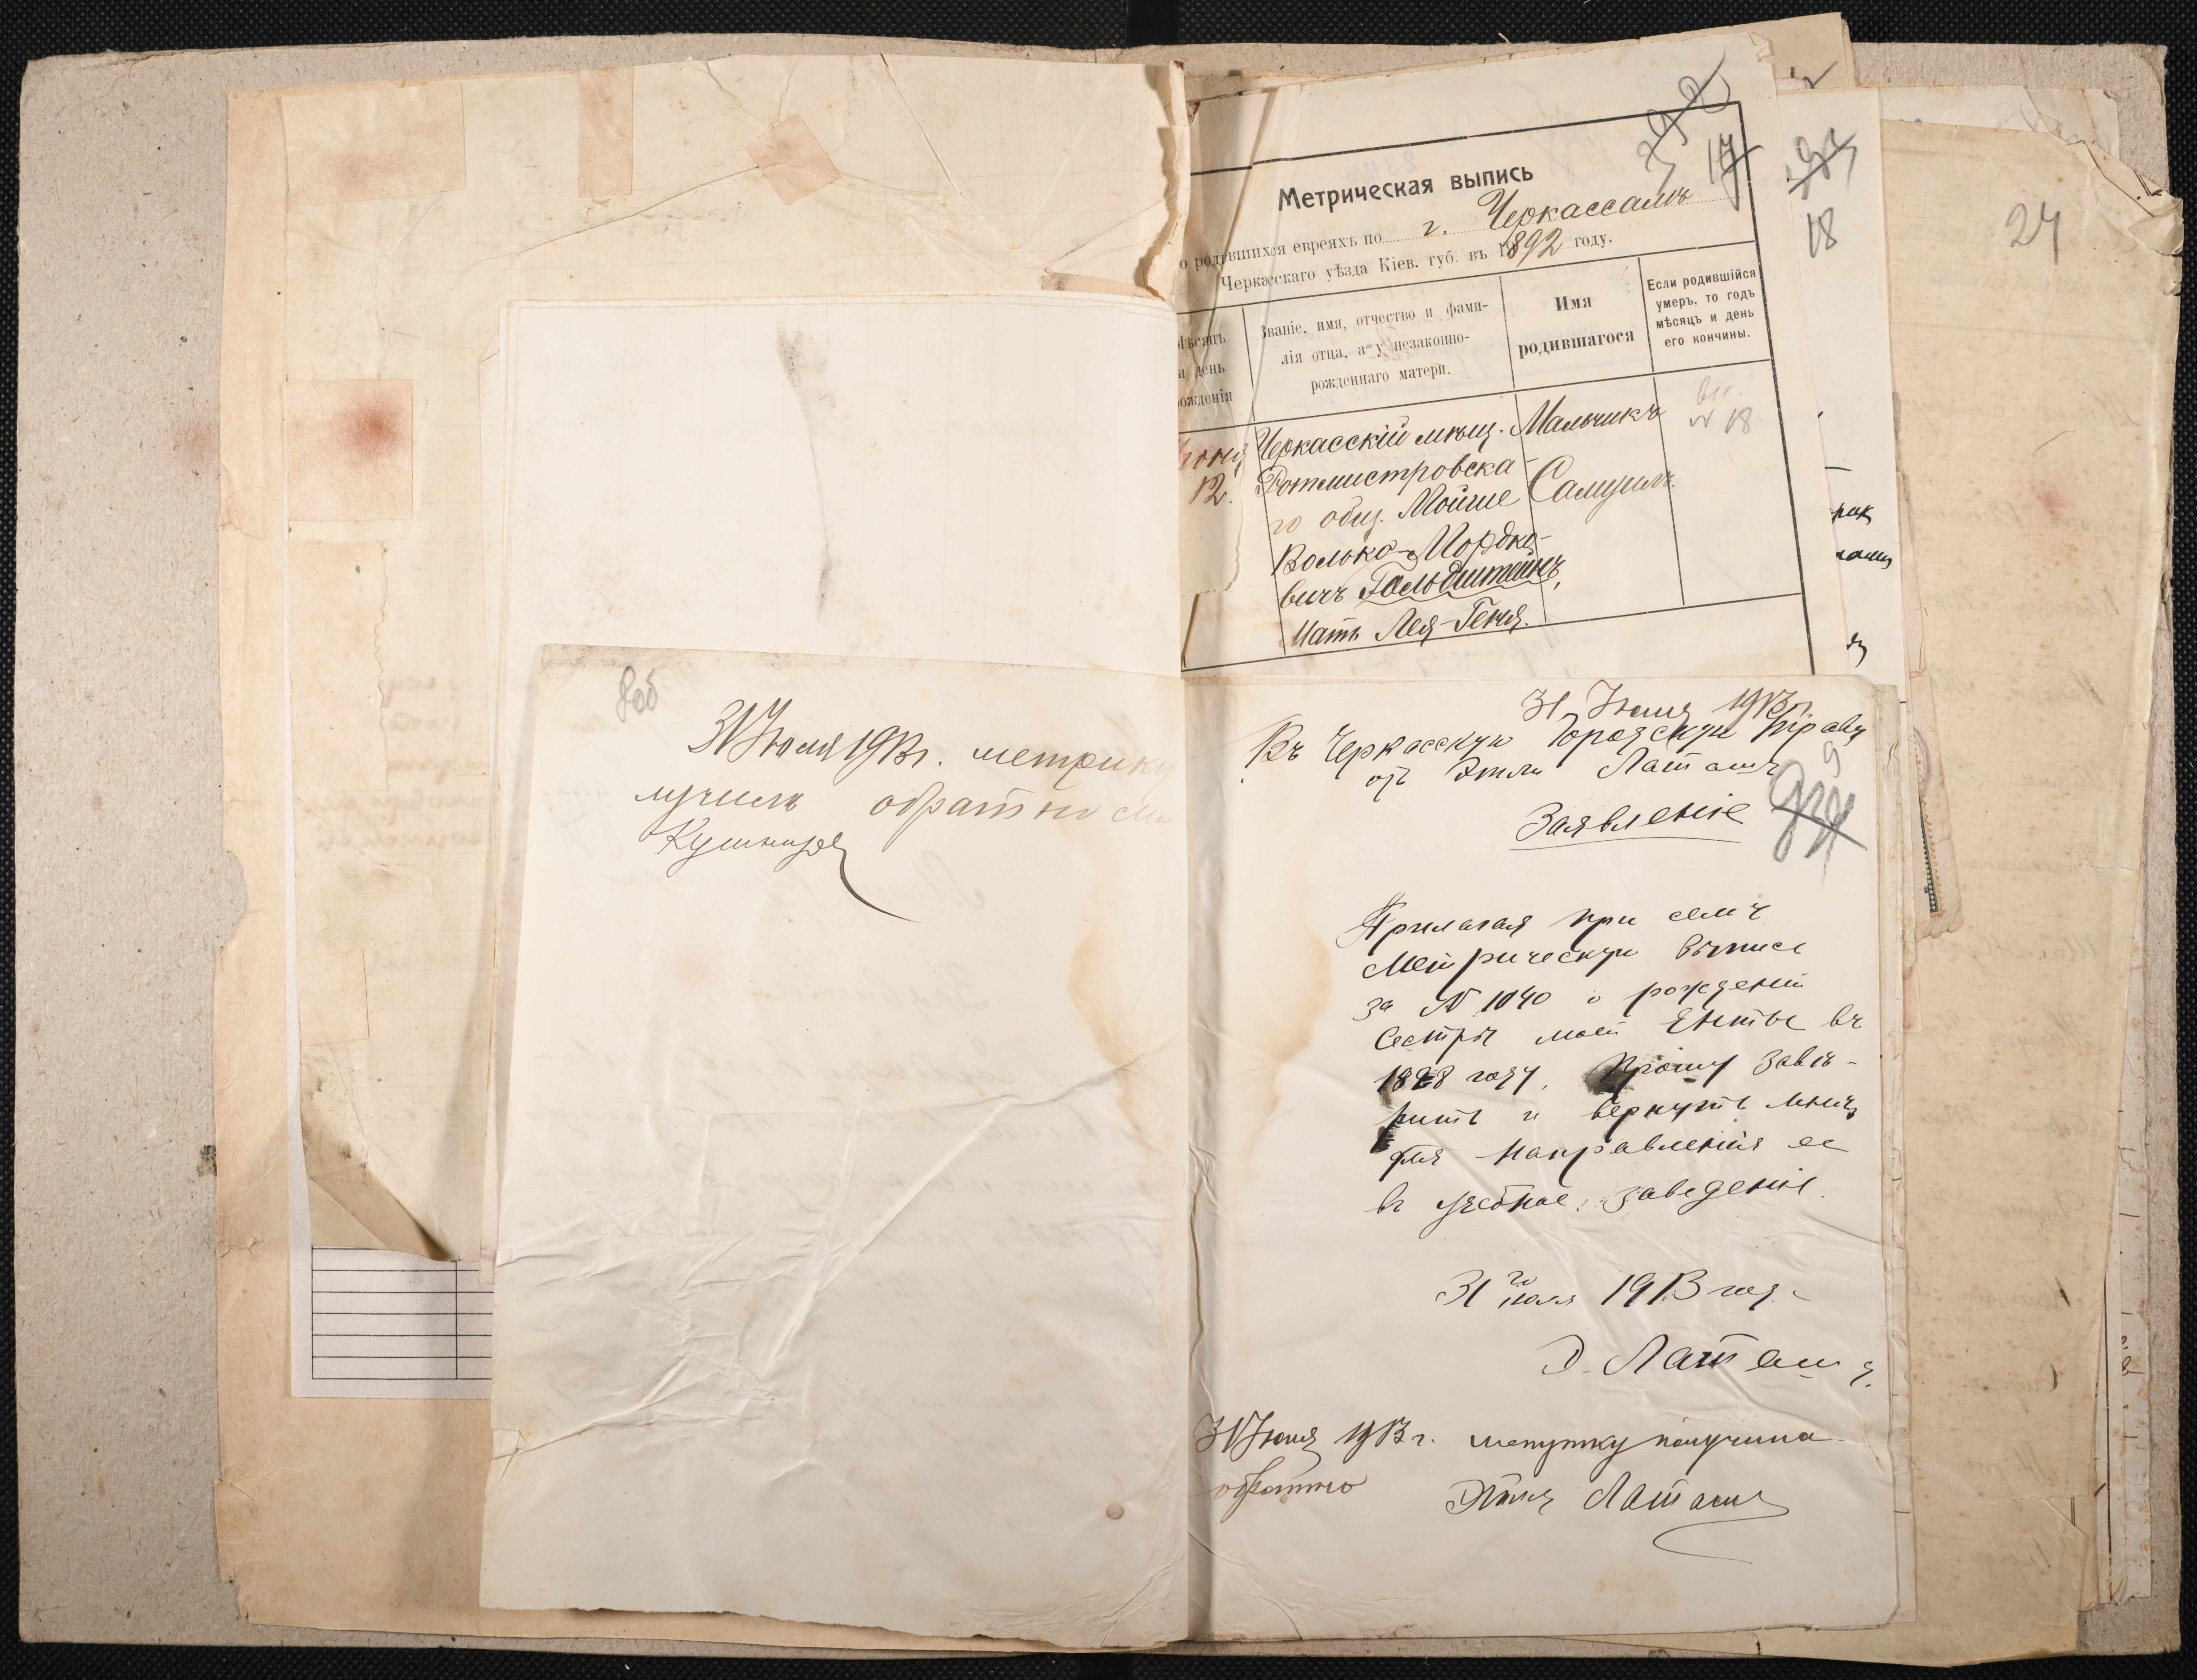 8об
31 Юля 1913 г. метрику
лучилъ обратно
Кушниръ
17
Метрическая выпись
о родившихся евреяхъ по г. Черкассамъ
Черкасскаго уѣзда Кіев. губ. въ 1892 году.
Мѣсяцъ
и день
рожденія
Званіе, имя, отчество и фами-
лія отца, а у незаконно-
рожденнаго матери.
Имя
родившагося
Если родившійся
умеръ, то годъ
мѣсяцъ и день
его кончины.
12.
Черкасскій мѣщ.
Ротмистровска-
го общ. Мойше
Волько-Мордко-
вичъ Гольдштейнъ,
Мать Лея-Геня.
Мальчикъ
Самуилъ.
вн.
№ 18
18
24
31 Июля 1913 г.
Въ Черкасскую Городскую Управу
отъ Этли Латашъ
9
Заявленіе
Прилагая при семъ
метрическую выпись
за № 1040 о рожденіи
сестры моей Енты въ
1898 году, Прошу завѣ-
рить и вернуть мнѣ
для направленія ее
въ учебное заведеніе.
31 го июля 1913 года
Э. Латашъ
31 Июля 1913 г. метрику получила
обратно
Этля Латашъ